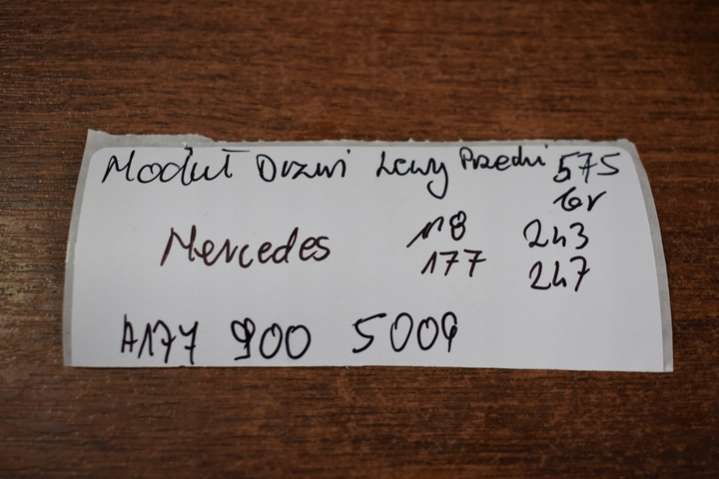 Moduł Drzwi Lewy Przedni 575
Mercedes 118 243
177 247
A177 900 5009